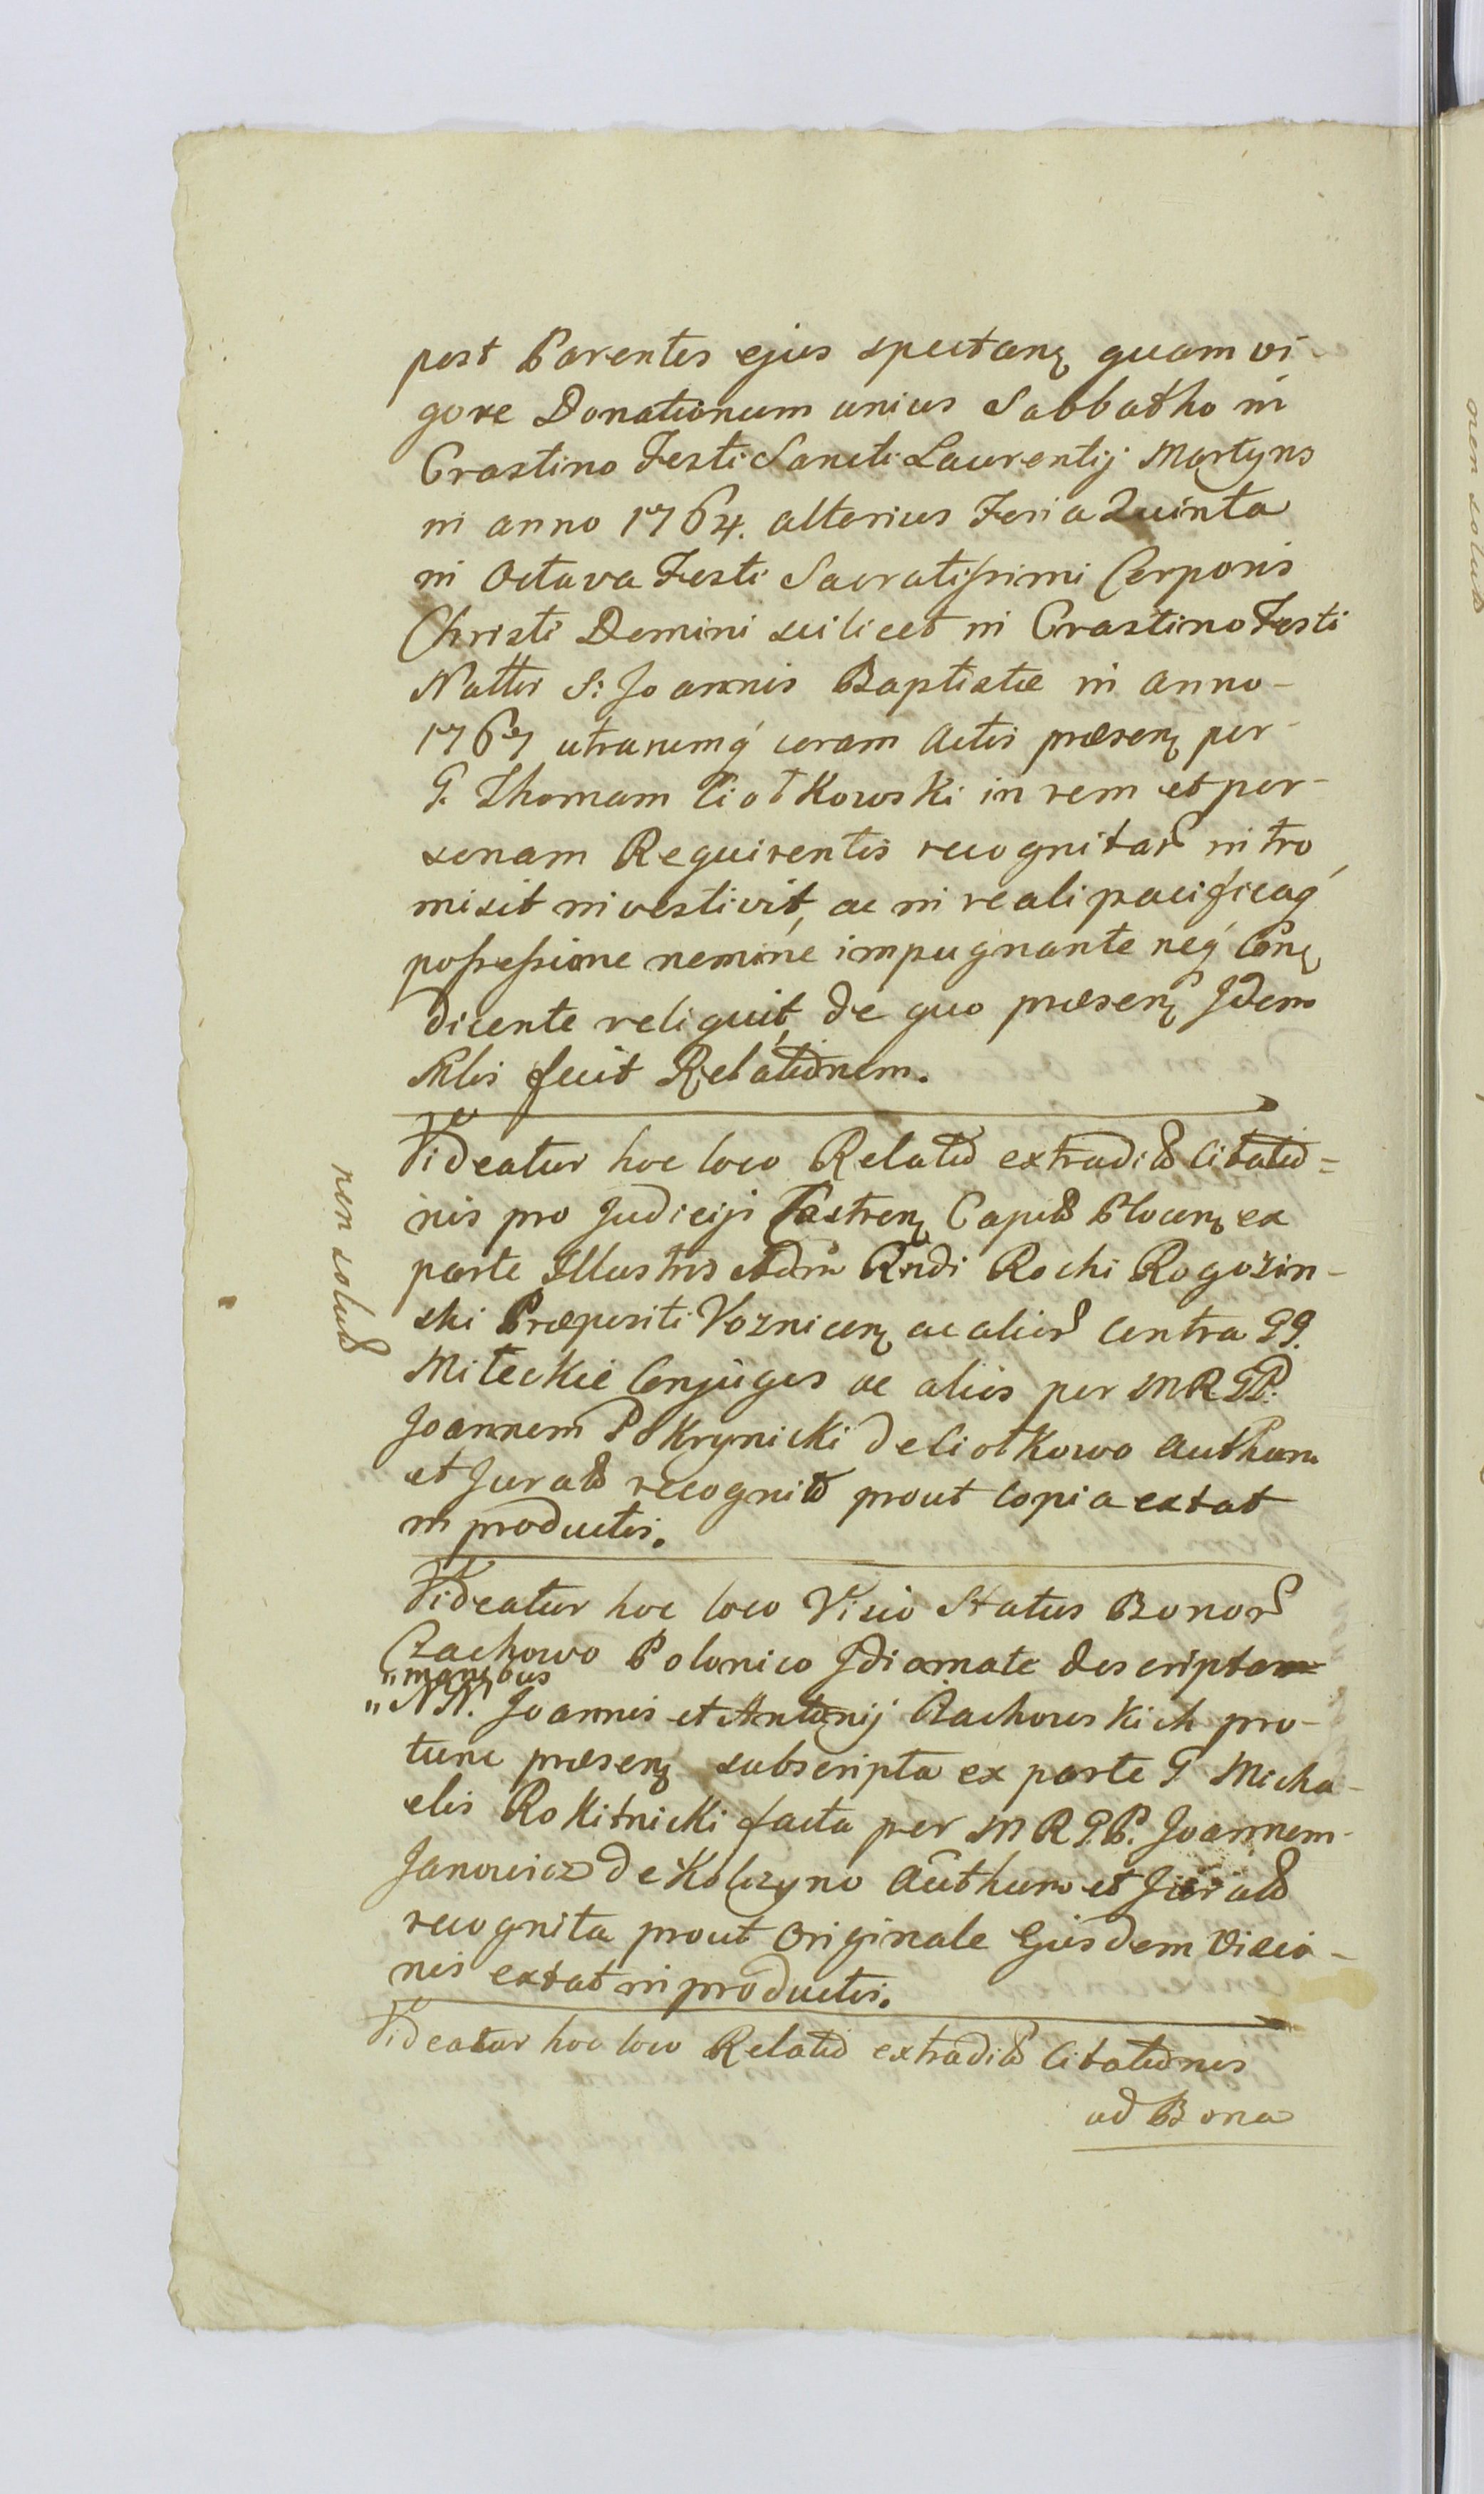 post Parentes ejus spectanꝫ quam vi
gore Donationum unius Sabbatho in
Crastino Festi Sancti Laurentij Martyris
in anno 1764. alterius Feria Quinta
in Octava Festi Sacratissimi Corporis
Christi Domini scilicet in Crastino Festi
Nattis S: Joannis Baptistæ in anno-
1767 utrarumq́ coram Actis præsenꝫ per-
G. Thomam Ciołkowski in rem et per-
sonam Requirentis recognitar intro
misit investivit, ac in reali pacificaq́
possessione nemine impugnante neq́ Conꝫ
dicente reliquit, de quo præsenꝫ Idem
Mlis fecit Relationem.
Videatur hoc loco Relatio extradit Citatio=
nis pro Judicijs Castrenꝫ Capit Plocenꝫ ex
parte Illustris Adm Rndi Rochi Rogoziń-
ski Præpositi Voznicenꝫ ac alior contra GG.
Miłeckie Conjuges ac aliis per MRGP.
Joannem Pokrynicki de Ciołkowo Authen
et Jurat recognit prout Copia extat
in productis.
non solut
Videatur hoc loco Visio Status Bonor
Czachowo Polonico Idiomate descripta
"manꝫbus
"NN. Joannis et Antonij Czachowskich pro-
tunc præsenꝫ subscripta ex parte G Micha-
elis Rokitnicki facta per MRGP. Joannem-
Janowicz de Kobzyno Authen et Jurat
recognita prout Originale Ejusdem Visio-
nis extat in productis.
Videatur hoc loco Relatio extradit Citationis
ad Bona